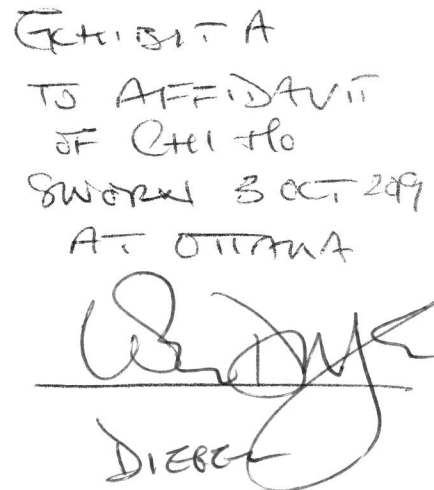 EXHIBIT A
TO AFFIDAVIT
OF CHI HO
SWORN 3 OCT 2019
AT OTTAWA
DIEBEL